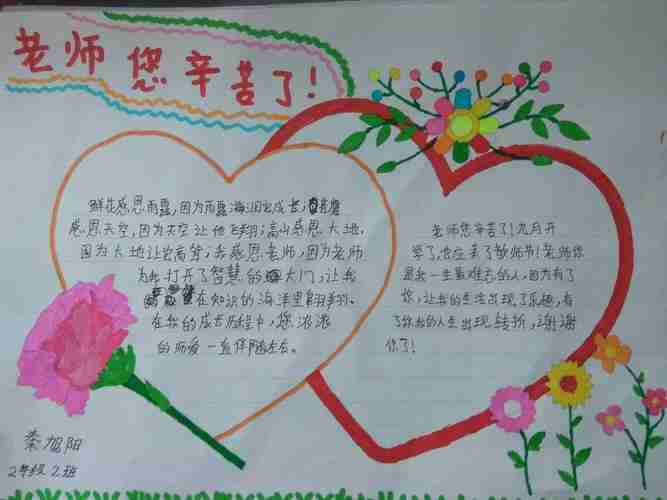 老师您辛苦了!
鲜花感恩雨露,因为雨露滋润它成长,
感恩天空,因为天空让他飞翔;高山感恩大地,
因为大地让它高耸;我感恩老师,因为老师
为我打开了智慧的大门,让我
在知识的海洋里翱翔。
在我的成长历程中,您浓浓
的师爱一直伴随左右。
老师您辛苦了!九月开
学了,也迎来了教师节!老师你
是我一生最难忘的人,因为有了
你,让我的生活出现了乐趣,有
了你我的人生出现转折,谢谢
你了!
秦旭阳
2年级2班